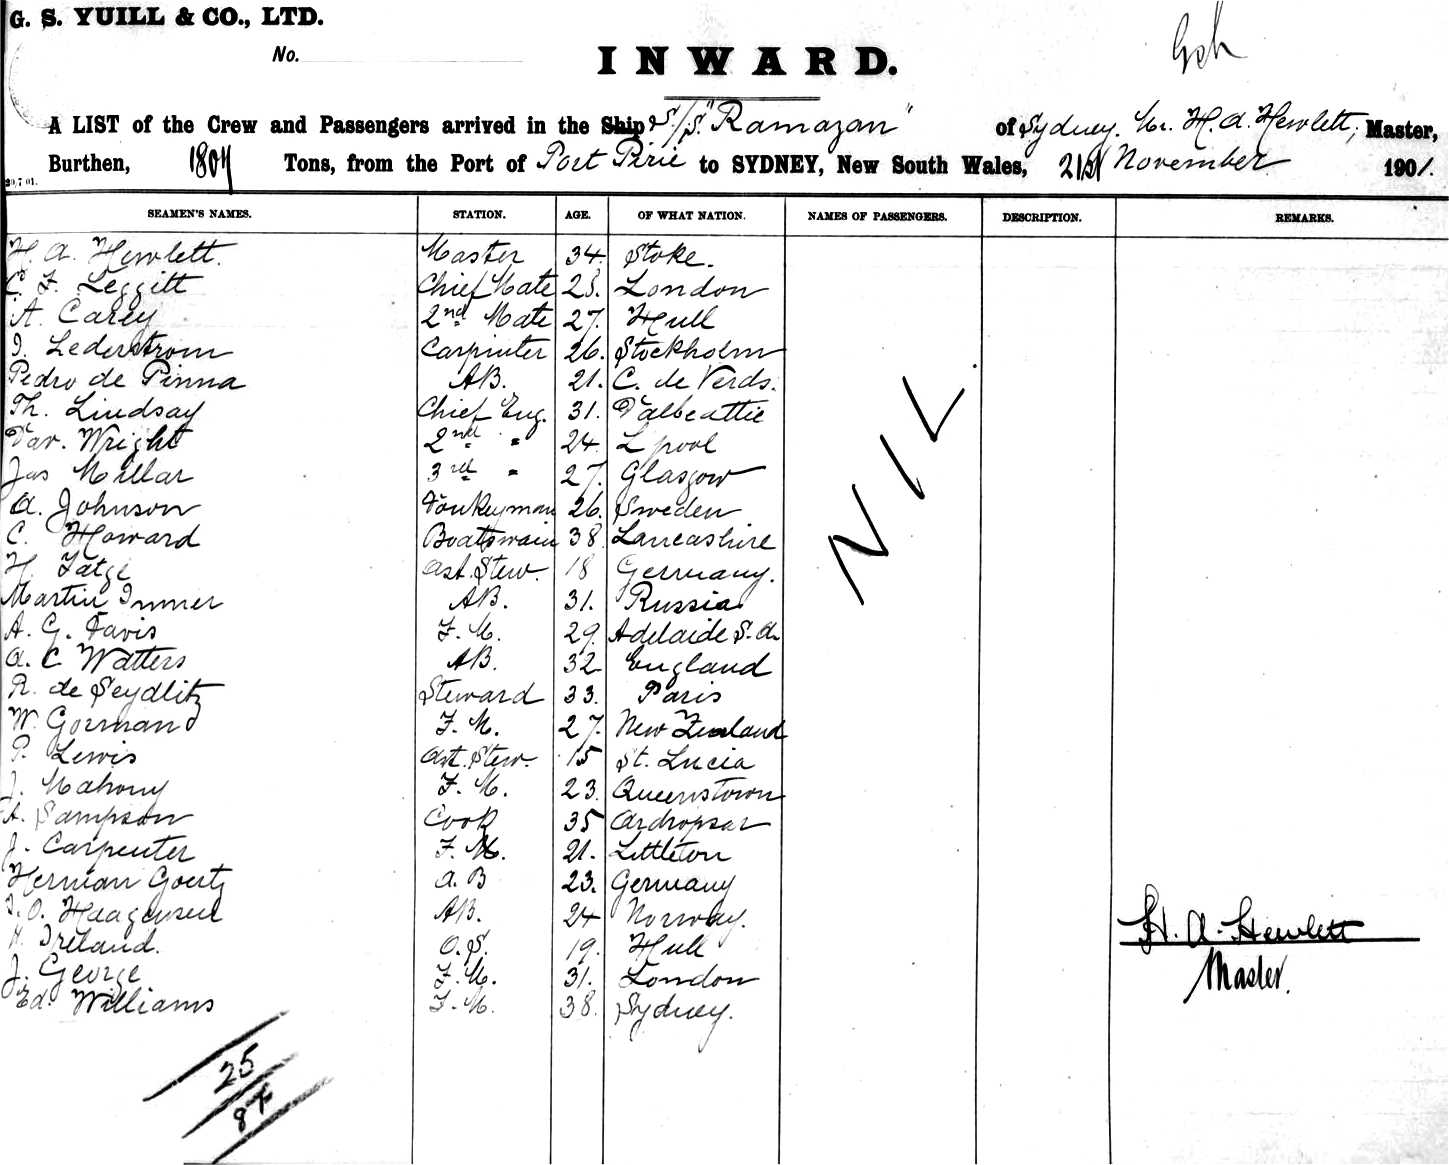 G. S. YUILL & CO., LTD.
No.
INWARD.
A LIST of the Crew and Passengers arrived in the Ship S/S "Ramazan" of Sydney, Mr. H. A. Hewlett, Master,
Burthen, 1804 Tons, from the Port of Port Pirie to SYDNEY, New South Wales, 21st November 1901.
20,7 01.
SEAMEN'S NAMES. STATION. AGE. OF WHAT NATION. NAMES OF PASSENGERS. DESCRIPTION. REMARKS.
H. A. Hewlett. Master 34 Stoke.
C. F. Leggitt Chief Mate 28. London
A. Carey 2nd Mate 27. Hull
J. Lederstrom Carpinter 26. Stockholm
Pedro de Pinna AB. 21. C. de Verds.
Th. Lindsay Chief Eng. 31. Dalbeattie
Dav. Wright 2nd " 24 L'pool
Jas Millar 3rd " 27. Glasgow
A. Johnson Donkeyman 26. Sweden
C. Howard Boatswain 38 Lancashire
H Tatge Ast. Stew. 18 Germany.
Martin Immer AB. 31. Russia
A. G. Davis F. M. 29. Adelaide S. A.
A. C Watters AB. 32 England
R. de Seydlitz Steward 33. Paris
W. Gorman F. M. 27. New Zealand
P. Lewis Ast. Stew. 15 St. Lucia
J. Mahony F. M. 23. Queenstown
A. Sampson Cook 35 Ardropsar
J. Carpenter F. M. 21. Littleton
Herman Goertz A. B 23. Germany
O. Haagensen AB. 24 Norway.
Ireland. O.S. 19. Hull
J. George F. M. 31. London
Ed. Williams F. M. 38. Sydney.
NIL.
H. A. Hewlett
Master.
25